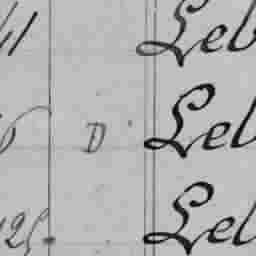 41 Leb
D Leb
125 Leb